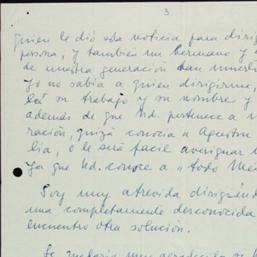 3
quien le dió esta noticia para dirig
persona, y también un hermano y a
de nuestra generación
Yo no sabía a quien dirigirme,
su trabajo y su nombre y
además de que Ud. pertenece a
ración, quizá conocía a
lia, o le será facil averiguar
Ya que Ud. conoce a "todo Mé
Soy muy atrevida dirigiénd
una completamente desconocida
encuentro otra solución.
muy agradecida si